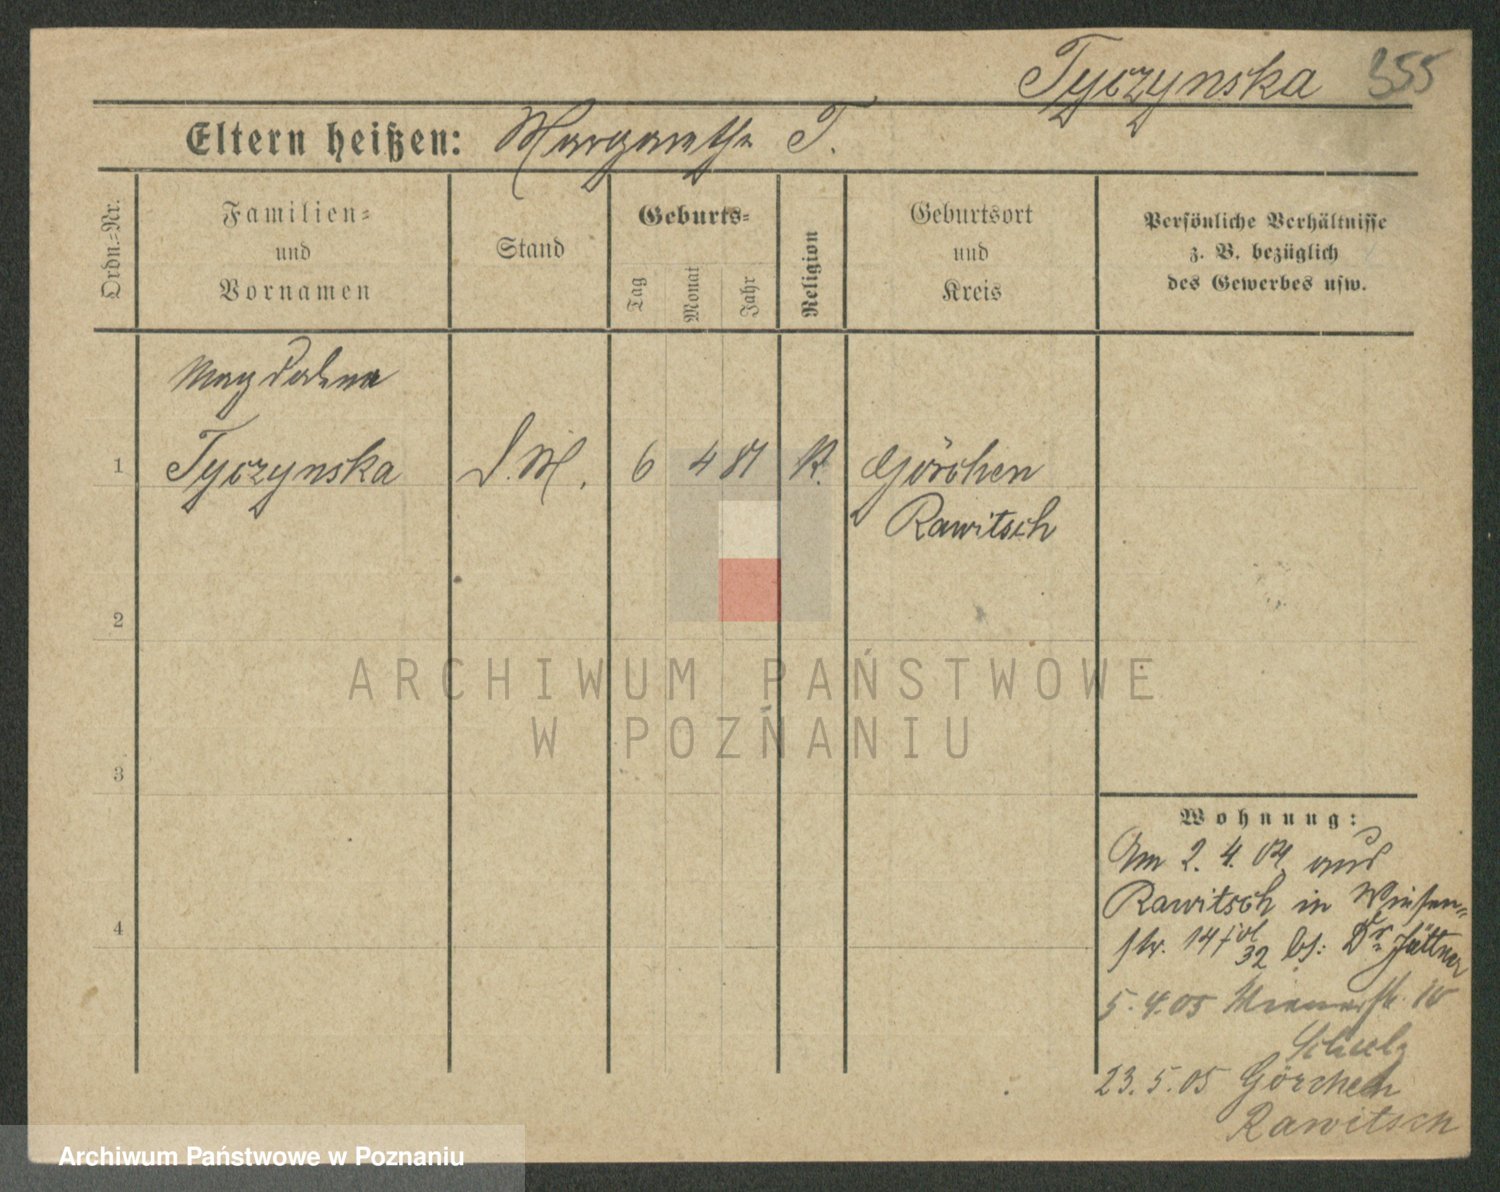 Tyczynska 355
Eltern heißen: Margarethe T.
Ordn.=Nr.
Familien=
und
Vornamen
Stand
Geburts=
Tag
Monat
Jahr
Religion
Geburtsort
und
Kreis
Persönliche Verhältnisse
z. B. bezüglich
des Gewerbes usw.
Magdalena
1 Tyczynska D.M. 6 4 87 K. Görchen
Rawitsch
2
ARCHIWUM PAŃSTWOWE
W POZNANIU
3
4
Wohnung:
Am 2. 4. 04 aus
Rawitsch in Wiesen=
str. 14 32 bs: Dr. Jüttner
5. 4. 05 10
Schulz
23. 5. 05 Görchen
Rawitsch
Archiwum Państwowe w Poznaniu